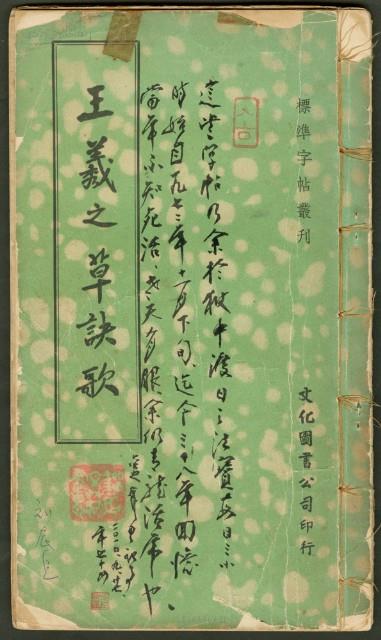 標準字帖叢刊
文化圖書公司印行
這些字帖乃余於獄中渡日之法寶每日三小
時始自一九七二年十一月下旬迄今三十八年回憶
當年不知死活、老天有眼余仍生龍活虎也。
二〇一〇、九、廿七
王羲之草訣歌